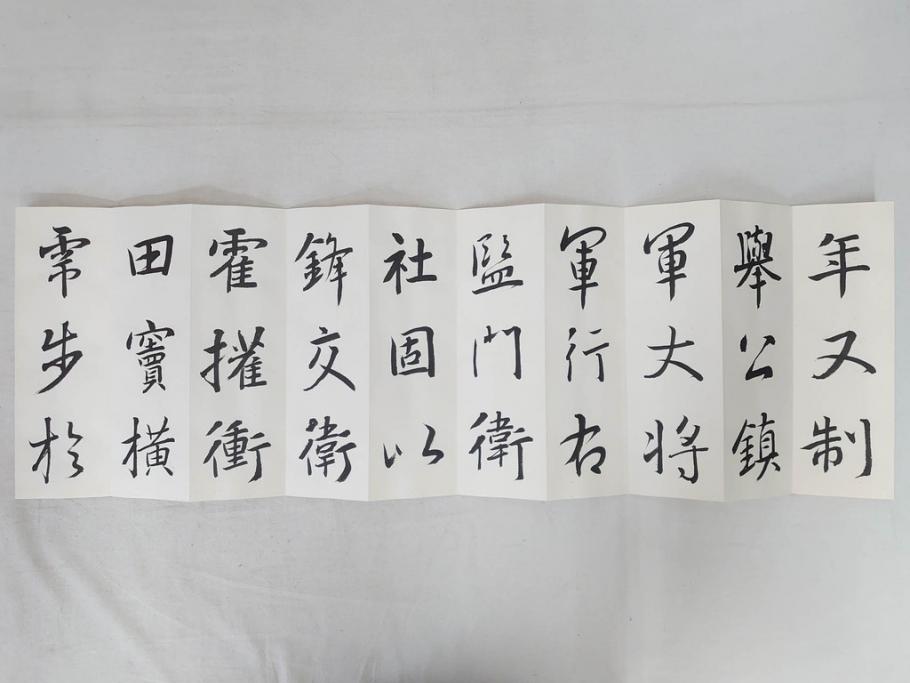 年又制
舉公鎮
軍大将
軍行右
監門衛
社固以
鋒交衛
霍擢衝
田竇横
步於